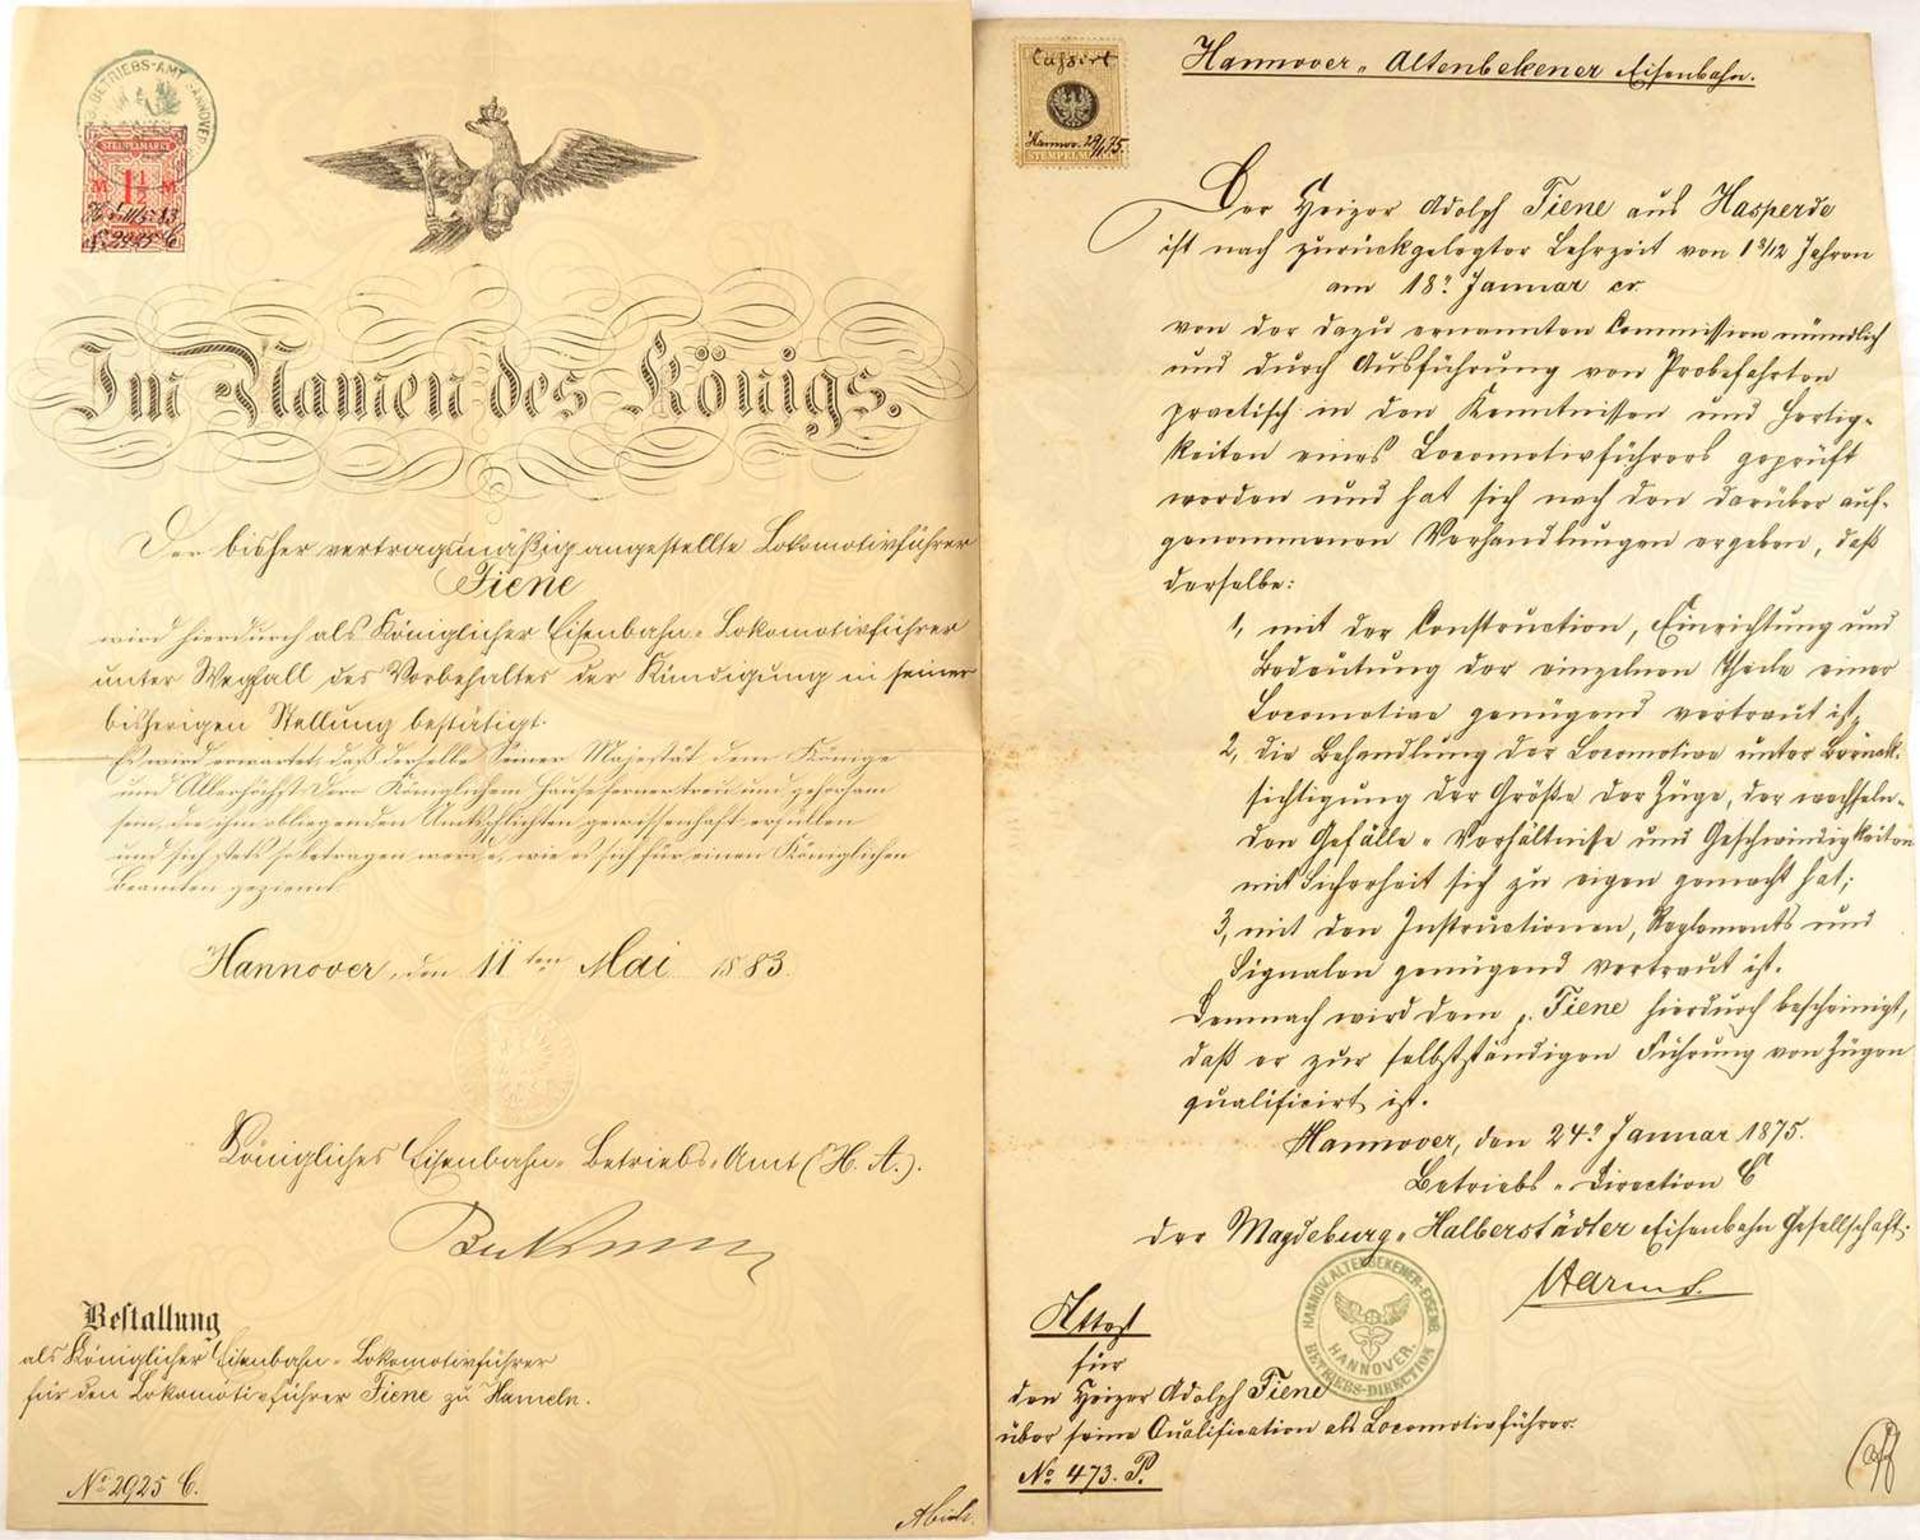 K. EISENB. BETRIEBS-AMT HANNOVER
STEMPELMARKE
M 1 1/2 M
H. d. 11/5. 83
No 2925 C
Im Namen des Königs.
Der bisher vertragsmäßig angestellte Lokomotivführer
Fiene
wird hierdurch als Königlicher Eisenbahn-Lokomotivführer
unter Wegfall des Vorbehaltes der Kündigung in seiner
bisherigen Stellung bestätigt.
Es wird erwartet, daß derselbe Seiner Majestät dem Könige
und Allerhöchst Dero Königlichem Hause ferner treu und gehorsam
sein, die ihm obliegenden Amtspflichten gewissenhaft erfüllen
und sich stets so betragen werde, wie es sich für einen Königlichen
Beamten geziemt.
Hannover, den 11ten Mai 1883.
Königliches Eisenbahn-Betriebs-Amt (H. A.).
Bestallung
als Königlicher Eisenbahn-Lokomotivführer
für den Lokomotivführer Fiene zu Hameln.
No 2925 C.
Cassirt
Hannov. 29/1 75.
STEMPELMARKE
Hannover-Altenbekener Eisenbahn.
Der Heizer Adolph Fiene aus Hasperde
ist nach zurückgelegter Lehrzeit von 1 3/12 Jahren
am 18t. Januar cr.
von der dazu ernannten Commission mündlich
und durch Ausführung von Probefahrten
practisch in den Kenntnissen und Fertig-
keiten eines Locomotivführers geprüft
worden und hat sich nach den darüber auf-
genommenen Verhandlungen ergeben, daß
derselbe:
1, mit der Construction, Einrichtung und
Bedeutung der einzelnen Theile einer
Locomotive genügend vertraut ist,
2, die Behandlung der Locomotive unter Berück-
sichtigung der Größe der Züge, der wechseln-
den Gefälle-Verhältnisse und Geschwindigkeiten
mit Sicherheit sich zu eigen gemacht hat;
3, mit den Instructionen, Reglements und
Signalen genügend vertraut ist.
Demnach wird dem p. Fiene hierdurch bescheinigt,
daß er zur selbstständigen Führung von Zügen
qualificirt ist.
Hannover, den 24t. Januar 1875.
Betriebs-Direction C
der Magdeburg-Halberstädter Eisenbahn Gesellschaft.
HANNOV. ALTENBEKENER-EISENB.
HANNOVER.
BETRIEBS-DIRECTION
Attest
für
den Heizer Adolph Fiene
über seine Qualification als Locomotivführer.
No 473. P.